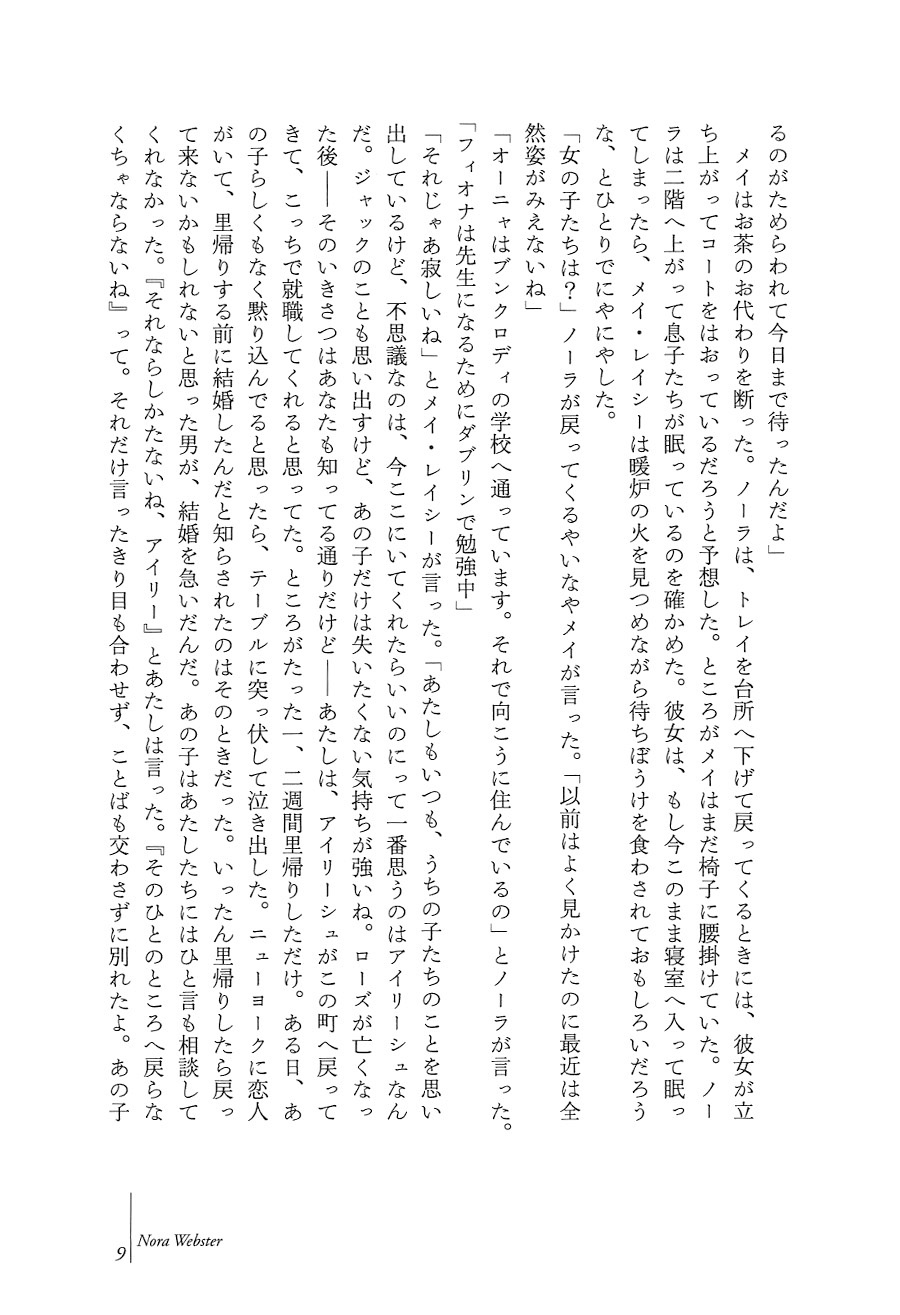 るのがためらわれて今日まで待ったんだよ」
　メイはお茶のお代わりを断った。ノーラは、トレイを台所へ下げて戻ってくるときには、彼女が立
ち上がってコートをはおっているだろうと予想した。ところがメイはまだ椅子に腰掛けていた。ノー
ラは二階へ上がって息子たちが眠っているのを確かめた。彼女は、もし今このまま寝室へ入って眠っ
てしまったら、メイ・レイシーは暖炉の火を見つめながら待ちぼうけを食わされておもしろいだろう
な、とひとりでにやにやした。
「女の子たちは？」ノーラが戻ってくるやいなやメイが言った。「以前はよく見かけたのに最近は全
然姿がみえないね」
「オーニャはブンクロディの学校へ通っています。それで向こうに住んでいるの」とノーラが言った。
「フィオナは先生になるためにダブリンで勉強中」
「それじゃあ寂しいね」とメイ・レイシーが言った。「あたしもいつも、うちの子たちのことを思い
出しているけど、不思議なのは、今ここにいてくれたらいいのにって一番思うのはアイリーシュなん
だ。ジャックのことも思い出すけど、あの子だけは失いたくない気持ちが強いね。ローズが亡くなっ
た後――そのいきさつはあなたも知ってる通りだけど――あたしは、アイリーシュがこの町へ戻って
きて、こっちで就職してくれると思ってた。ところがたった一、二週間里帰りしただけ。ある日、あ
の子らしくもなく黙り込んでると思ったら、テーブルに突っ伏して泣き出した。ニューヨークに恋人
がいて、里帰りする前に結婚したんだと知らされたのはそのときだった。いったん里帰りしたら戻っ
て来ないかもしれないと思った男が、結婚を急いだんだ。あの子はあたしたちにはひと言も相談して
くれなかった。『それならしかたないね、アイリー』とあたしは言った。『そのひとのところへ戻らな
くちゃならないね』って。それだけ言ったきり目も合わせず、ことばも交わさずに別れたよ。あの子
9 Nora Webster